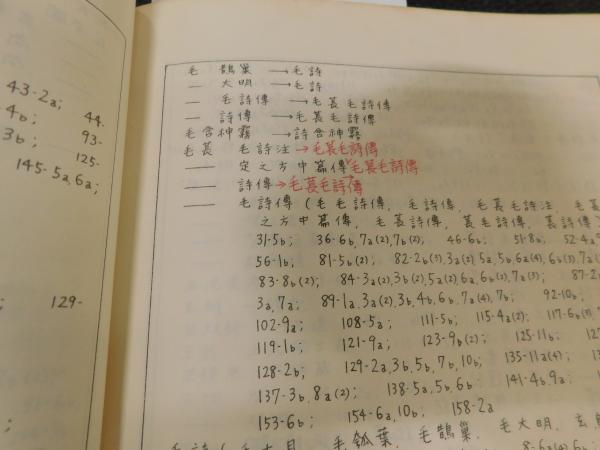 43-2a; 44-
4b; 93-
3b; 125-
145-5a,6a;
129-
毛 鵲巢 → 毛詩
— 大明 → 毛詩
— 毛詩傳 → 毛萇毛詩傳
— 詩傳 → 毛萇毛詩傳
毛含神霧 → 詩含神霧
毛萇 毛詩注 → 毛萇毛詩傳
— 定之方中篇傳 毛萇毛詩傳
— 詩傳 → 毛萇毛詩傳
— 毛詩傳 (毛毛詩傳, 毛詩傳, 毛萇毛詩注, 毛萇
之方中篇傳, 毛萇詩傳, 萇毛詩傳, 萇詩傳
31-5b; 36-6b,7a(2),7b(2); 46-6b; 51-8b; 52-4a
56-1b; 81-5b(2); 82-2b(3),3a(2),5a,5b,6a(4),6b(3),7a
83-8b(2); 84-3a(2),3b(2),5a(2),6a,6b(2),7a(3); 87-2
3a,7a; 89-1a,3a(2),3b,4b,6b,7a(4),7b; 92-10b;
102-9a; 108-5a; 111-5b; 115-4a(2); 117-6b
119-1b; 121-9a; 123-9b(2); 125-11b; 127
128-2b; 129-2a,3b,5b,7b,10b; 135-11a(4); 13
137-3b,8a(2); 138-5a,5b,6b; 141-4b,9a;
153-6b; 154-6a,10b; 158-2a
毛瓠葉, 毛鵲巢, 毛大明, 玄鳥
8-6a(4),6b